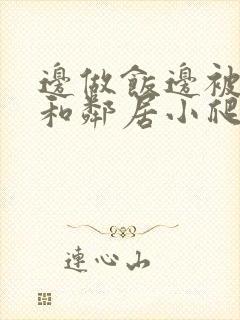 邊做飯邊被
和鄰居小爬
連心山